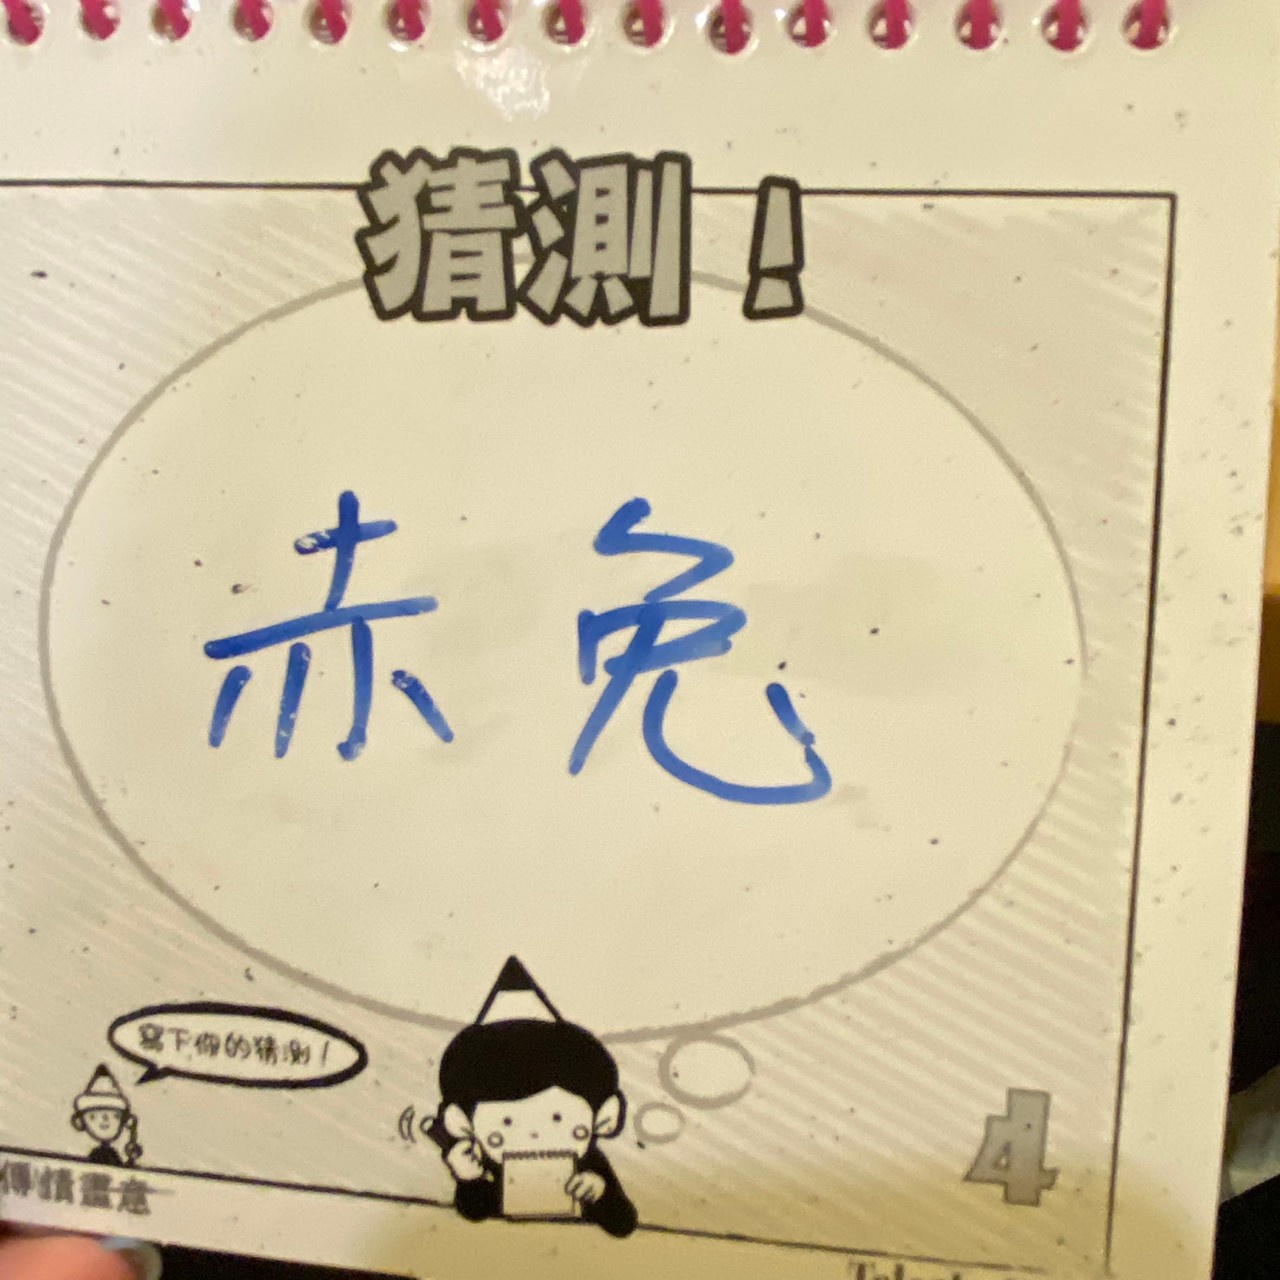 猜測！
赤兔
寫下你的猜測！
4
傳情畫意